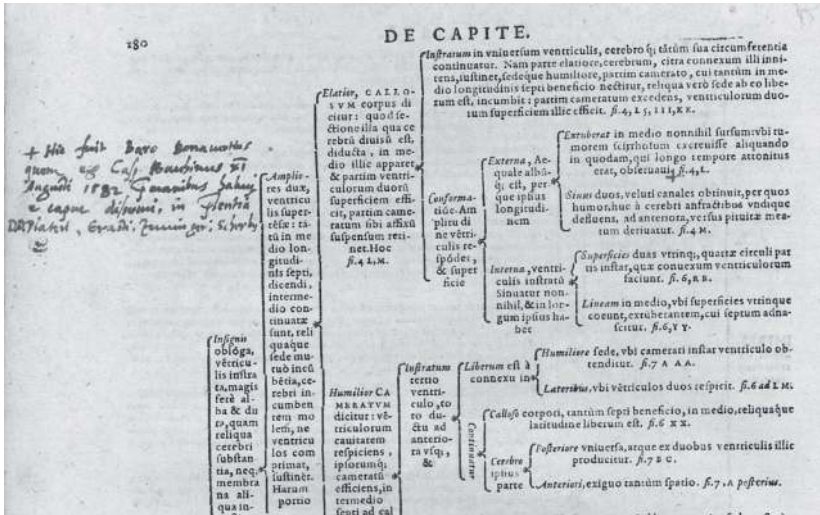 180
DE CAPITE.
Insignis
oblõga,
vẽtricu-
lis instra
ta, magis
ferè al-
ba & du
ra, quam
reliqua
cerebri
substan-
tia, neq;
membra
na ali-
qua in-
Amplio-
res dux,
ventricu
lis super-
tu in me
dio lon-
gitudi-
nis septi,
dicendi,
interme-
dio con-
tinuatæ
sunt, reli
quaque
sede mu-
tuò incũ
bẽtia, ce-
rebri in-
cumben
tem mo
lem, ne
ventricu
los com
primat,
sustinẽt.
Harum
portio
Elatior, CALLO-
SVM corpus di
citur: quod se-
ctione illa qua ce
rebrũ diuisũ est,
diducta, in me-
dio illic apparet,
& partim ventri-
culorum duorũ
superficiem effi-
cit, partim came-
ratum sibi affixũ
suspensum reti-
net. Hoc
fi.4 L, M.
Humilior CA
MERATVM
dicitur: vẽ-
triculorum
cauitatem
respiciens,
ipsorumq;
cameratũ
efficiens, in
termedio
septi ad cal
Instratum in vniuersum ventriculis, cerebro q; tãtùm sua circumferentia
continuatur. Nam parte elatiore, cerebrum, citra connexum illi inni-
tens, sustinet, sedeque humiliore, partim camerato, cui tantùm in me-
dio longitudinis septi beneficio nectitur, reliqua verò sede ab eo libe-
rum est, incumbit: partim cameratum excedens, ventriculorum duo-
rum superficiem illic efficit. fi.4, L 5, I I I, K K.
Conforma-
tiõe. Am
plitudi
ne vẽtri-
culis re-
spõdet,
& super
ficie
Externa, Ae-
quale albũ-
q; est, per
que ipsius
longitudi-
nem
Exuberat in medio nonnihil sursum: vbi tu-
morem scirrhosum excreuisse aliquando
in quodam, qui longo tempore attonitus
erat, obseruaui fi.4, L.
Sinus duos, veluti canales obtinuit, per quos
humor, huc à cerebri anfractibus vndique
defluens, ad anteriora, versus pituitæ mea-
tum deriuatur. fi.4 M.
Interna, ventri-
culis instratũ
Sinuatur non-
nihil, & in lon-
gum ipsius ha-
bet
Superficies duas vtrinq;, quartæ circuli par
tis instar, quæ conuexum ventriculorum
faciunt. fi.6, R R.
Lineam in medio, vbi superficies vtrinque
coeunt, exuberantem, cui septum adna-
scitur. fi.6, Y Y.
Instratum
tertio
ventri-
culo, to
to du-
ctu ad
anterio-
ra vsq;,
&
Liberum est à
connexu in
Humiliore sede, vbi camerati instar ventriculo ob-
tenditur. fi.7 A A A.
Lateribus, vbi vẽtriculos duos respicit. fi.6 ad L M.
Continuatur
Calloso corpori, tantùm septi beneficio, in medio, reliquaque
latitudine liberum est. fi.6 X X.
Cerebro
ipsius
parte
Posteriore vniuersa, atque ex duobus ventriculis illic
producitur. fi.7 B C.
Anteriori, exiguo tantùm spatio. fi.7. A posterius.
+ Hic fuit Baro Bonacurtius
quem ego Casp. Bauhinus XI
Augusti 1582